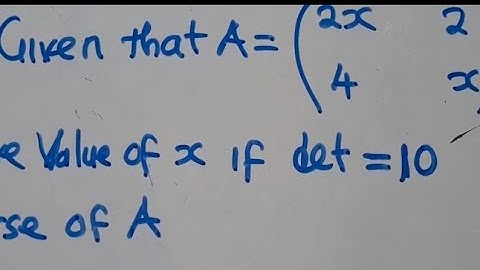 Given that A = (2x 2
4 x
e Value of x if det = 10
rse of A